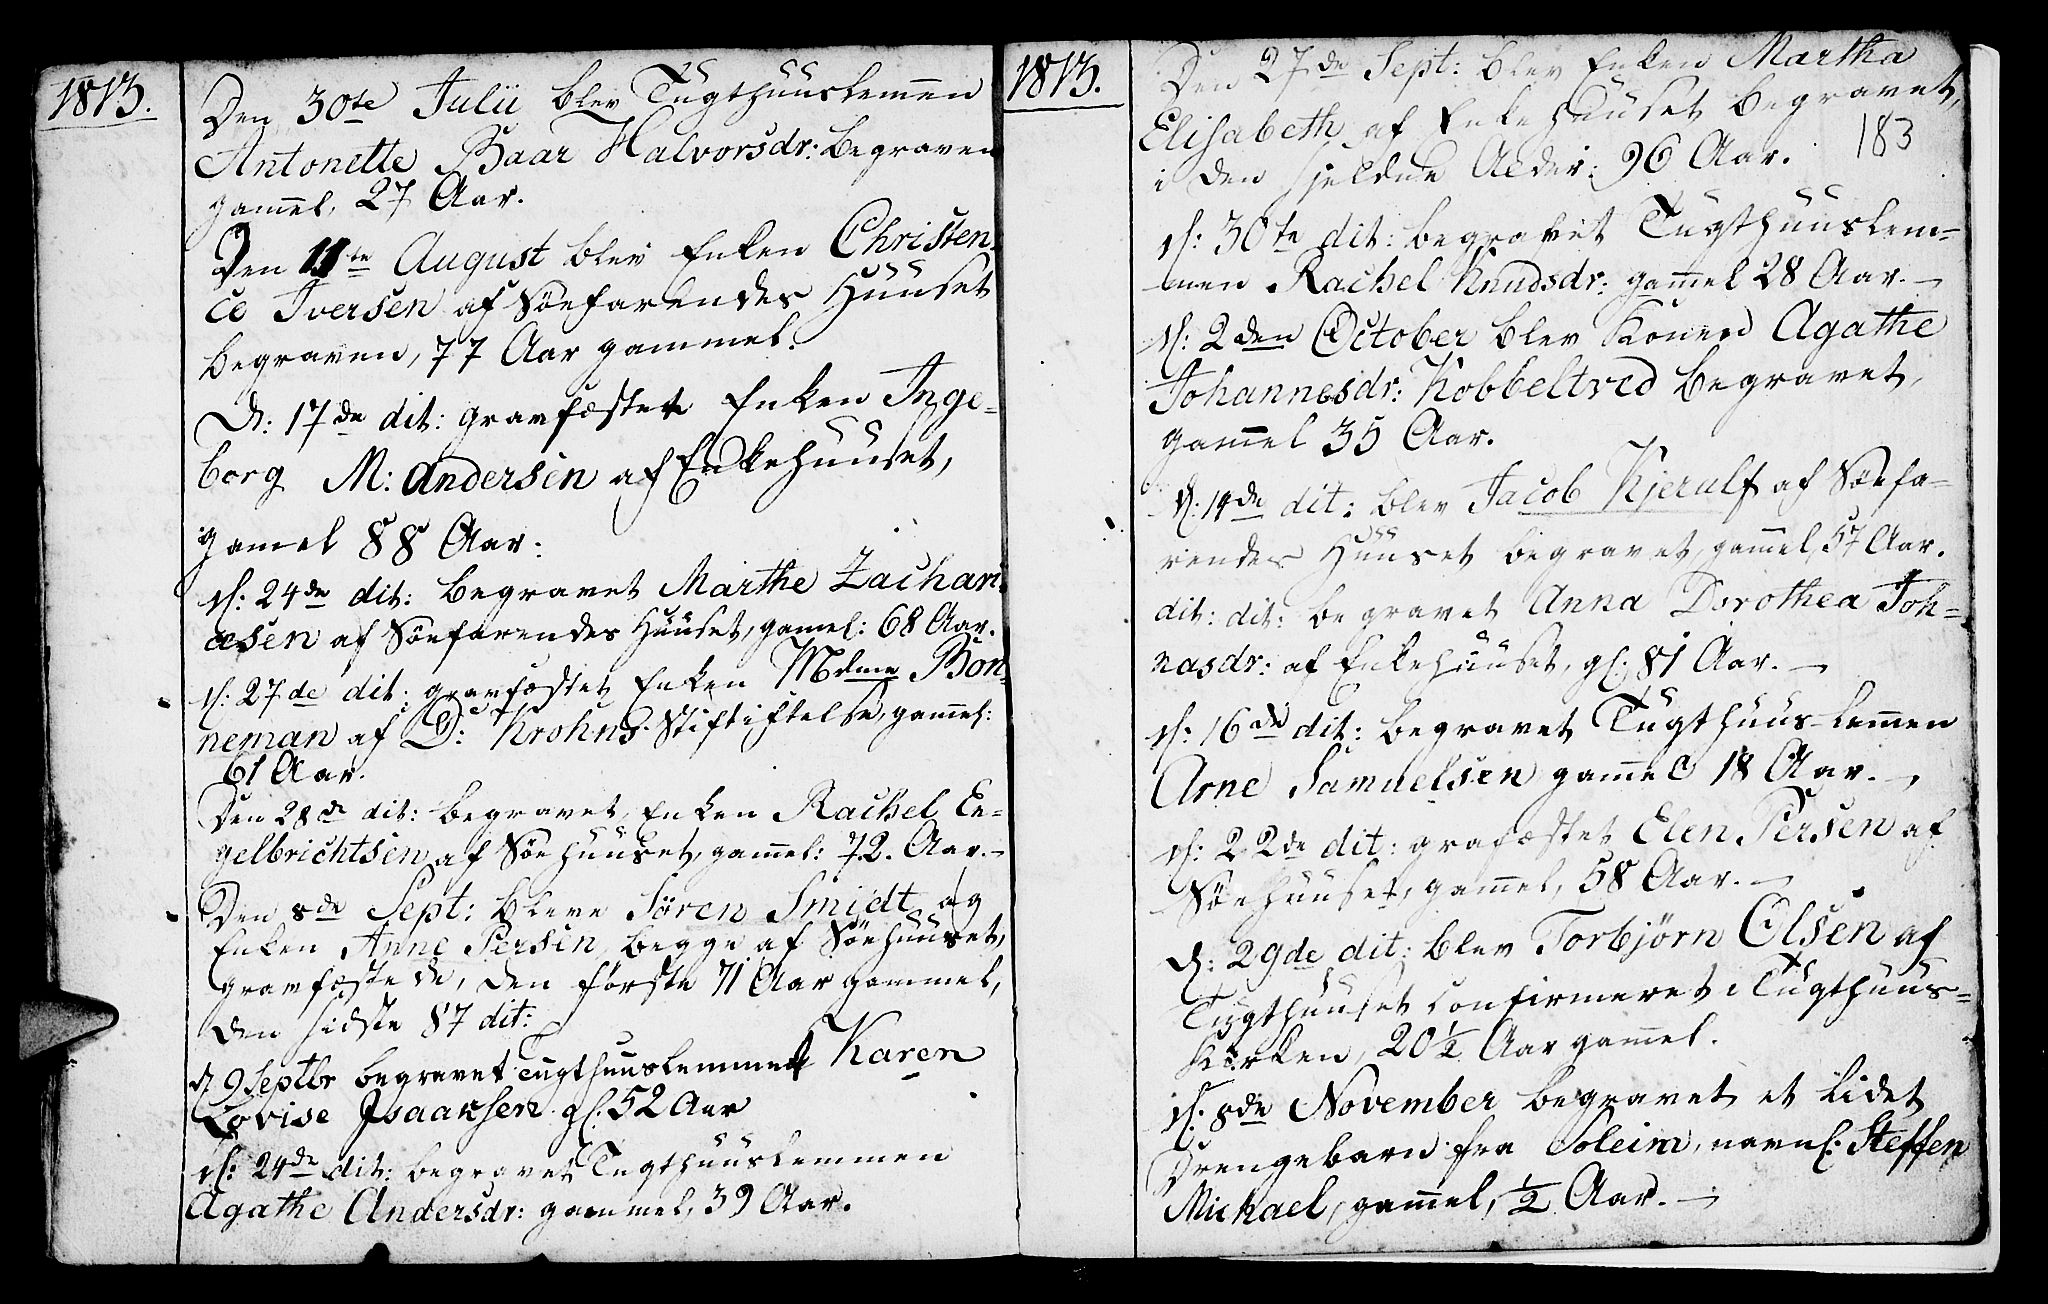 1813.
Den 30te Julii blev Tugthuuslemen
Antonette Baar Halvorsdr: begraven
gamel, 27 Aar.
Den 11te August blev Enken Christen
ce Iversen af Söefarendes Huuset
begraven, 77 Aar gammel.
D: 17de dit: gravfæstet Enken Inge-
borg M: Andersen af Enkehuuset,
gamel 88 Aar.
d: 24de dit: begravet Marthe Zachari
æsen af Söefarendes Huuset, gamel: 68 Aar.
d: 27de dit: gravfæstet Enken Mdme Bon-
neman af D: Krohns Stiftiftelse, gammel:
61 Aar.
Den 28de dit: begravet Enken Rachel En-
gelbrichtsen af Söehuuset, gamel: 72. Aar.-
Den 8de Sept: bleve Sören Smidt og
Enken Anne Persen, begge af Söehuuset,
gravfæstede, den förste 71 Aar gammel,
den sidste 87 dit:
d 9 Septbr begravet Tugthuuslemmet Karen
Lovise Isaaksen gl. 52 Aar
d: 24de dit: begravet Tugthuuslemmen
Agathe Andersdr: gammel, 39 Aar.
1813.
Den 27de Sept: blev Enken Martha
Elisabeth af Enkehuuset begravet,
i den sjeldne Alder: 96 Aar.
183
d: 30te dit: begravet Tugthuuslem-
men Rachel Knudsdr: gamel 28 Aar.-
d: 2den October blev Konen Agathe
Johannesdr: Kobbeltved begravet,
gamel 35 Aar.
d: 14de dit: blev Jacob Kjerulf af Söefa-
rendes Huuset begravet, gamel, 57 Aar.
dit: dit: begravet Anna Dorothea Joh-
nasdr: af Enkehuuset, gl: 81 Aar.-
d: 16de dit: begravet Tugthuus-lemen
Arne Samuelsen gamel 18 Aar.-
d: 22de dit: grafæstet Elen Persen af
Söehuuset, gamel, 58 Aar.-
D: 29de dit: blev Torbjørn Olsen af
Tugthuuset confirmeret i Tugthuus-
Kirken, 20½ Aar gamel.
d: 8de November begravet et lidet
Drengebarn fra Soleim, navnl: Steffen
Michael, gamel, ½ Aar.-